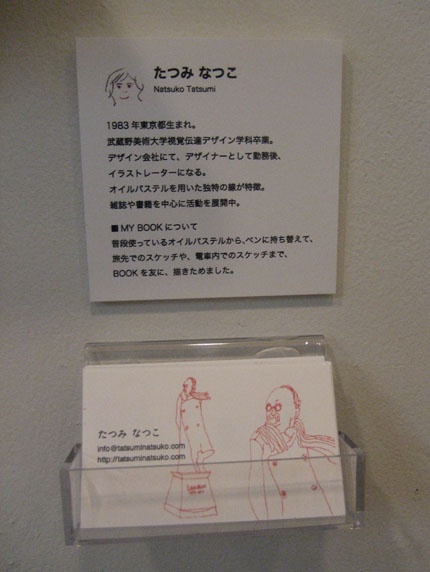 たつみ なつこ
Natsuko Tatsumi
1983年東京都生まれ。
武蔵野美術大学視覚伝達デザイン学科卒業。
デザイン会社にて、デザイナーとして勤務後、
イラストレーターになる。
オイルパステルを用いた独特の線が特徴。
雑誌や書籍を中心に活動を展開中。
■MY BOOKについて
普段使っているオイルパステルから、ペンに持ち替えて、
旅先でのスケッチや、電車内でのスケッチまで、
BOOKを友に、描きためました。
たつみ なつこ
info@tatsuminatsuko.com
http://tatsuminatsuko.com